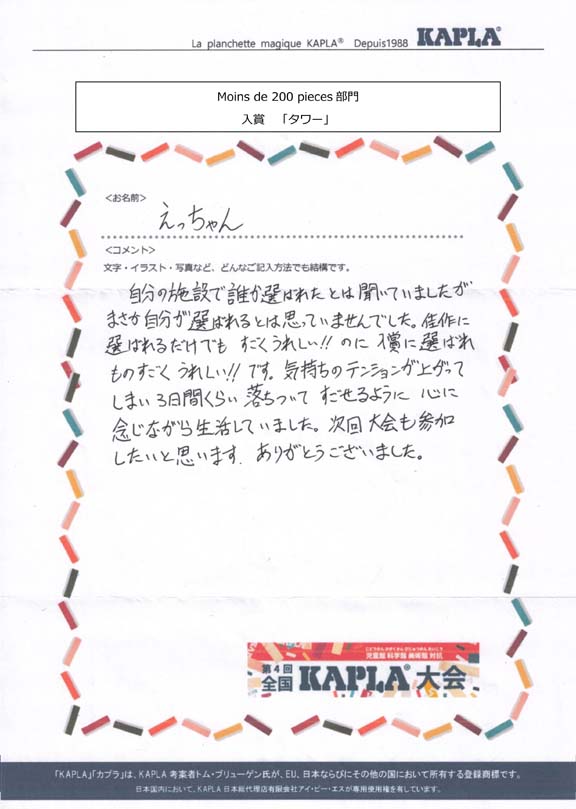 La planchette magique KAPLA® Depuis1988 KAPLA®
Moins de 200 pieces 部門
入賞 「タワー」
<お名前>
えっちゃん
<コメント>
文字・イラスト・写真など、どんなご記入方法でも結構です。
自分の施設で誰か選ばれたとは聞いていましたが
まさか自分が選ばれるとは思っていませんでした。佳作に
選ばれるだけでも すごくうれしい!! のに 入賞に選ばれ
ものすごく うれしい!! です。気持ちのテンションが上がって
しまい 3日間くらい 落ちついて すごせるように 心に
念じながら生活していました。次回大会も参加
したいと思います. ありがとうございました。
児童館 科学館 美術館 対抗
第4回
全国 KAPLA® 大会
「KAPLA」「カプラ」は、KAPLA 考案者トム・ブリューゲン氏が、EU、日本ならびにその他の国において所有する登録商標です。
日本国内において、KAPLA 日本総代理店有限会社アイ・ピー・エスが専用使用権を有しています。